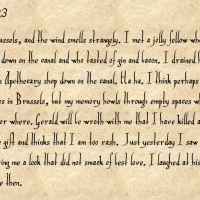 23
ussels, and the wind smells strangely. I met a jolly fellow wh
down on the canal and who tasted of gin and bacon. I drained h
n Apothecary shop down on the canal. Ha ha. I think perhaps
es in Brussels, but my memory howls through empty spaces wh
er where. Gerald will be wroth with me that I have killed a
e gift and thinks that I am too rash. Just yesterday I saw
ing me a look that did not smack of best love. I laughed at his
e then.